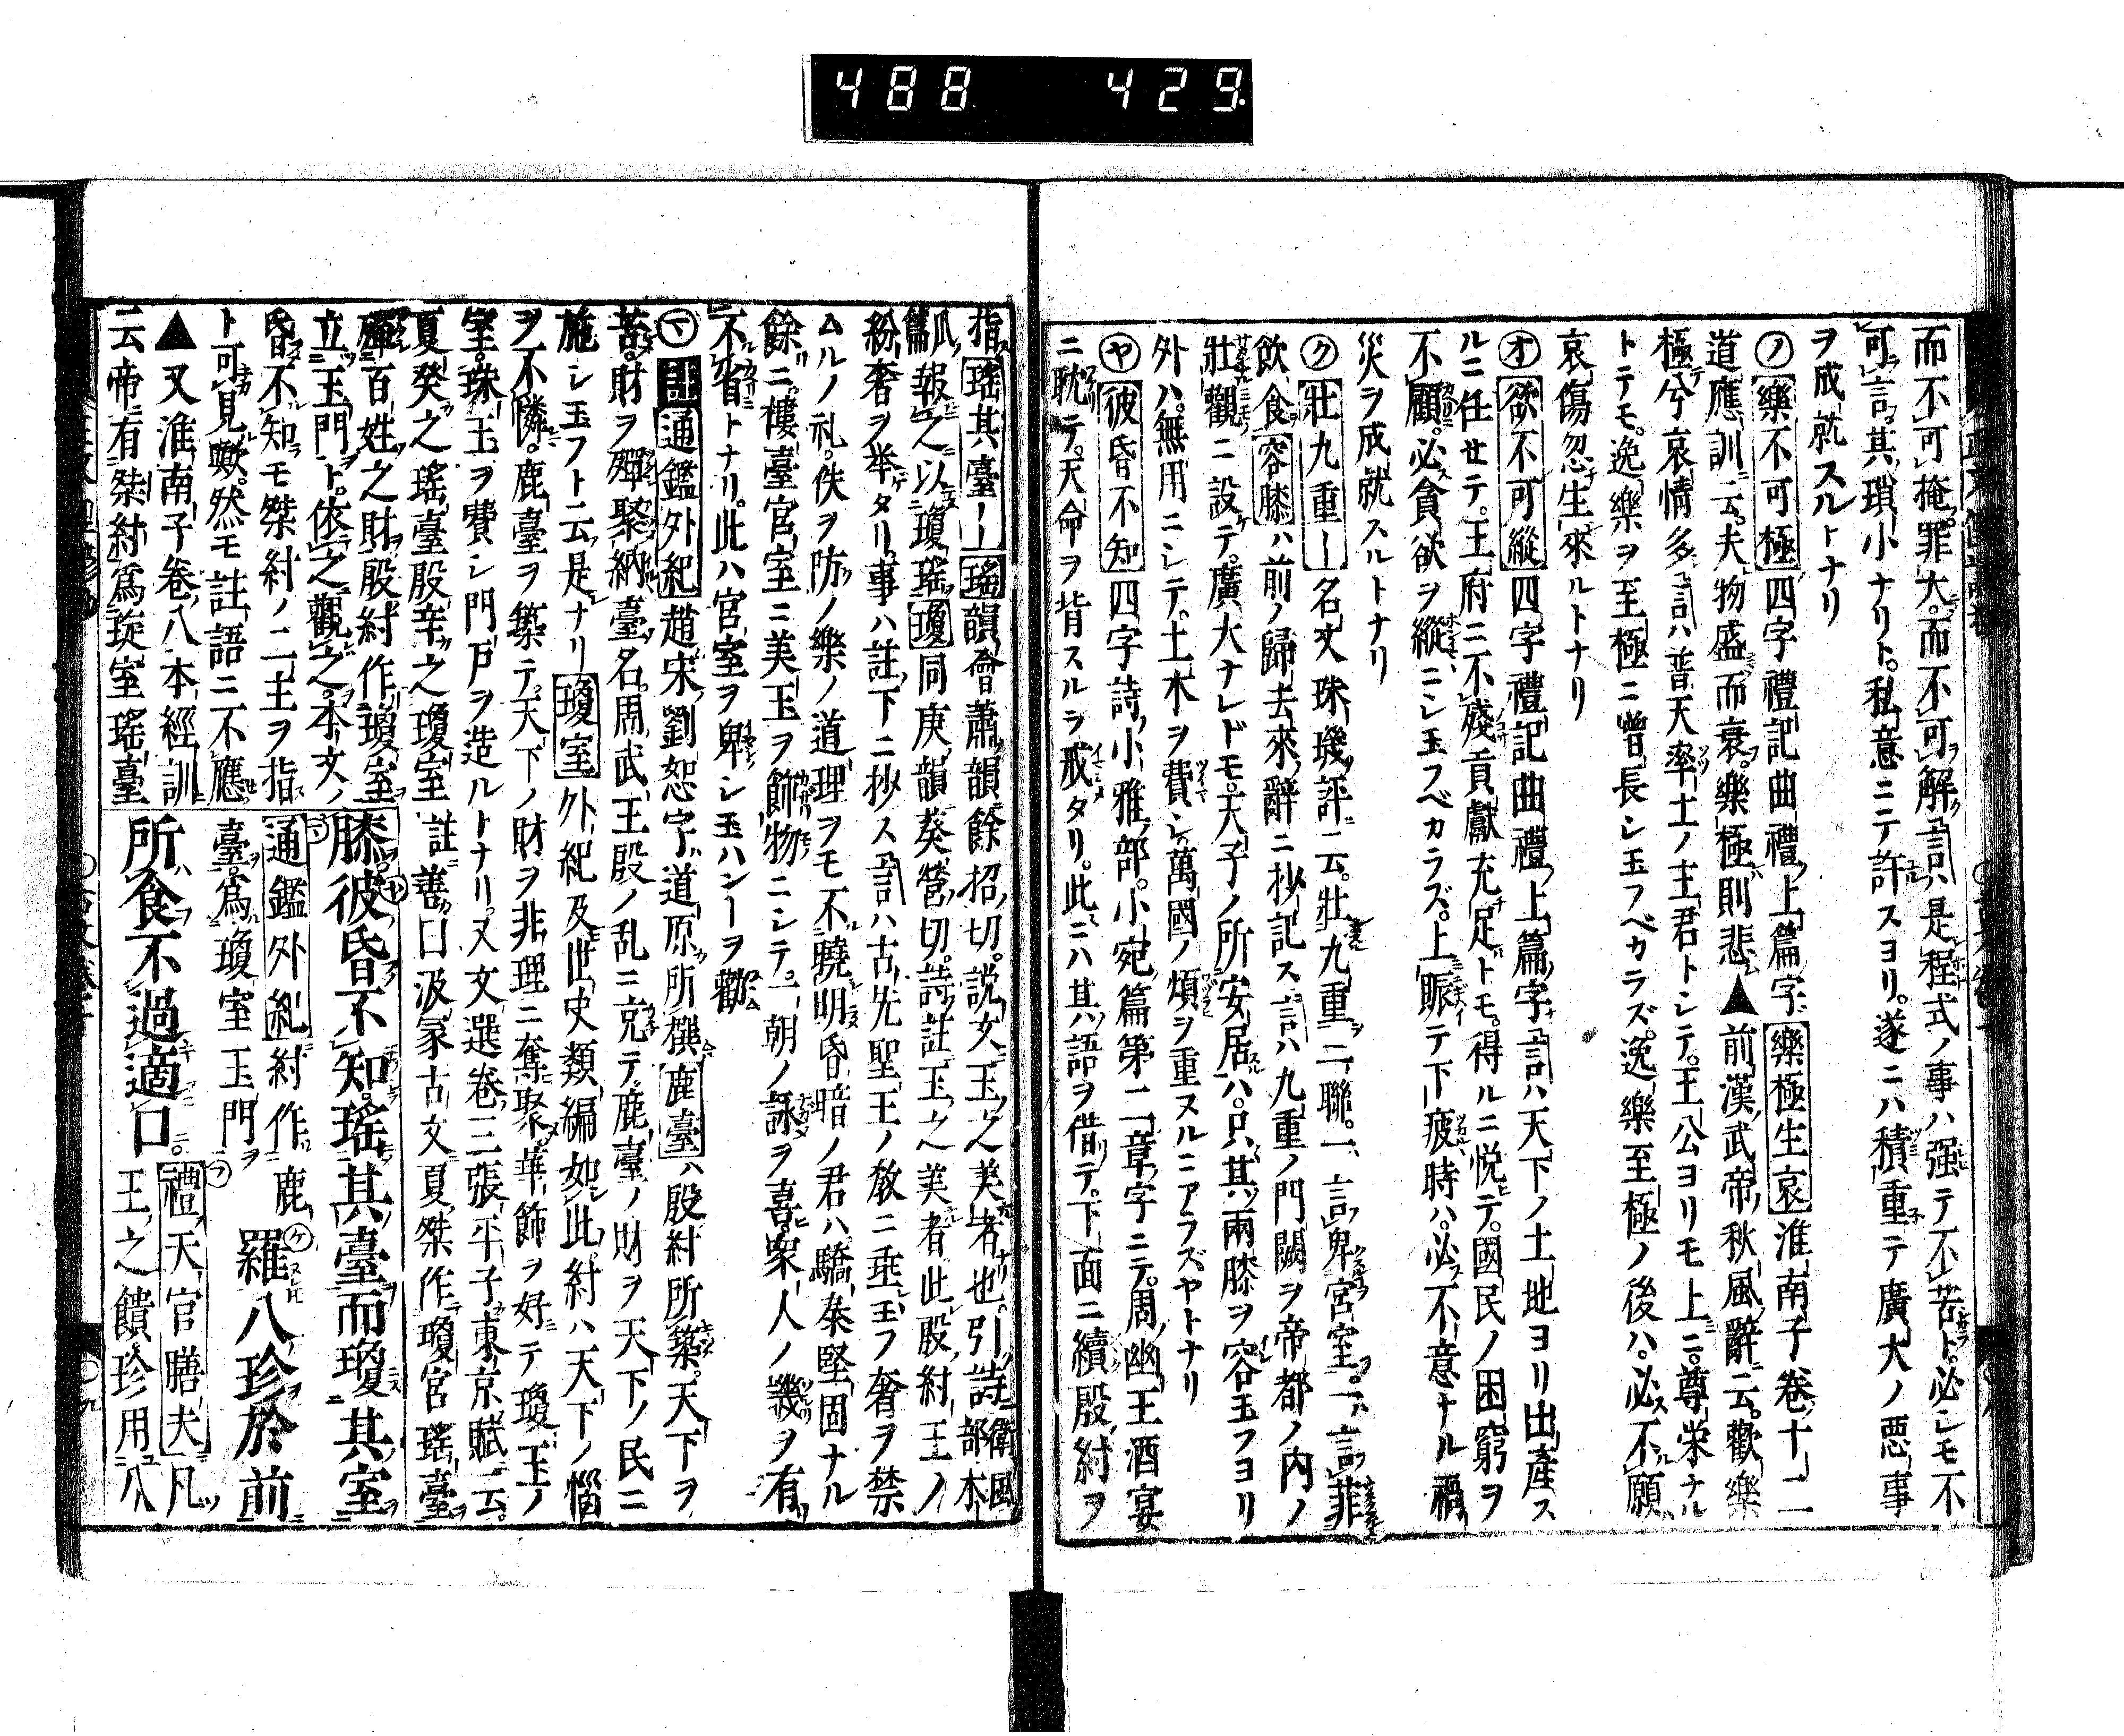 488 429
而不可掩罪大而不可解言ハ是程式ノ事ハ强テ不苦ト必シモ不
可言其瑣小ナリト私意ニテ許スヨリ遂ニハ積重テ廣大ノ悪事
ヲ成就スルトナリ
ノ樂不可極四字禮記曲禮上篇字樂極生哀淮南子卷十二
道應訓云夫物盛而衰樂極則悲▲前漢武帝秋風辭云歡樂
極兮哀情多言ハ普天率土ノ主君トシテ王公ヨリモ上ニ尊栄ナル
トテモ逸樂ヲ至極ニ曾長シ玉フベカラズ逸樂至極ノ後ハ必不願
哀傷忽生來ルトナリ
オ欲不可縱四字禮記曲禮上篇字言ハ天下ノ土地ヨリ出產ス
ルニ任セテ王府ニ不殘貢獻充足トモ得ルニ悦テ國民ノ困窮ヲ
不顧必貪欲ヲ縱ニシ玉フベカラズ上賑テ下疲時ハ必不意ナル禍
災ヲ成就スルトナリ
ク壯九重ー名文珠璣評云壯九重二聯一言卑宮室一言菲
飲食容膝ハ前ノ歸去來辭ニ抄記ス言ハ九重ノ門闕ヲ帝都ノ内ノ
壯觀ニ設テ廣大ナレドモ天子ノ所安居ハ只其兩膝ヲ容玉フヨリ
外ハ無用ニシテ土木ヲ費シ萬國ノ煩ヲ重ヌルニアラズヤトナリ
ヤ彼昏不知四字詩小雅部小宛篇第二章字ニテ周幽王酒宴
ニ耽テ天命ヲ背スルヲ戒タリ此ニハ其語ヲ借テ下面ニ續殷紂ヲ
指瑤其臺ー瑤韻會蕭韻餘招切説文玉之美者也引詩衛風部木
瓜篇報之以瓊瑤瓊同庚韻葵營切詩註玉之美者此殷紂王ノ
紛奢ヲ举タリ事ハ註下ニ抄ス言ハ古先聖王ノ教ニ垂玉フ奢ヲ禁
ムルノ礼佚ヲ防ノ樂ノ道理ヲモ不曉明昏暗ノ君ハ驕泰堅固ナル
餘ニ樓臺宮室ニ美玉ヲ飾物ニシテ一朝ノ詠ヲ喜衆人ノ譏ヲ有
不省トナリ此ハ宮室ヲ卑シ玉ハンーヲ勸
マ註通鑑外紀趙宋劉恕字道原所撰鹿臺ハ殷紂所築天下ヲ
苦財ヲ殫聚納臺名周武王殷ノ乱ニ克テ鹿臺ノ財ヲ天下ノ民ニ
施シ玉フト云是ナリ瓊室外紀及世史類編如此紂ハ天下ノ惱
ヲ不憐鹿臺ヲ築テ天下ノ財ヲ非理ニ奪聚華飾ヲ好テ瓊玉ノ
室珠玉ヲ費シ門戸ヲ造ルトナリ又文選卷三張平子東京賦云
夏癸之瑤臺殷辛之瓊室註善曰汲冢古文夏桀作瓊宮瑤臺
殫百姓之財殷紂作瓊室
立玉門ト依之觀之本文ノ
昏不知モ桀紂ノ二主ヲ指
ト可見歟然モ註語ニ不應
▲又淮南子卷八本經訓
云帝有桀紂爲琁室瑤臺
膝彼昏不知瑤其臺而瓊其室
通鑑外紀紂作鹿
臺爲瓊室玉門
羅八珍於前
所食不過適口
禮天官膳夫凡
王之饋珍用八